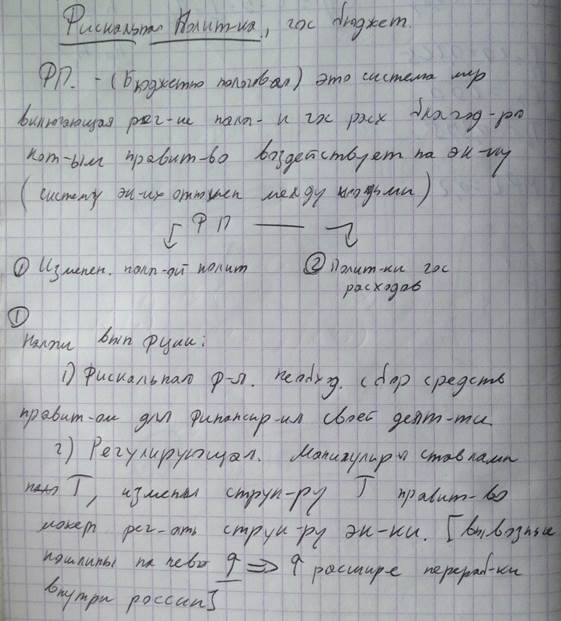 Фискальная Полит-ка, гос бюджет.
ФП. - (Бюджетно налоговая) это система мер
включающая рег-ие нало- и гос расх благод-ря
кот-ым правит-во воздействует на эк-ку
(систему эк-их отнош между людьми)
ФП
① Изменен. налог-ой полит
② Полит-ки гос
расходов
①
Налоги вып фции:
1) Фискальная ф-я. необход. сбор средств
правит-ом для финансир-ия своей деят-ти
2) Регулирующая. Манипулируя ставками
T, изменяя струк-ру T правит-во
может рег-ать струк-ру эк-ки. [вывозные
пошлины на нефть ⇒ расшире перераб-ки
внутри россии]